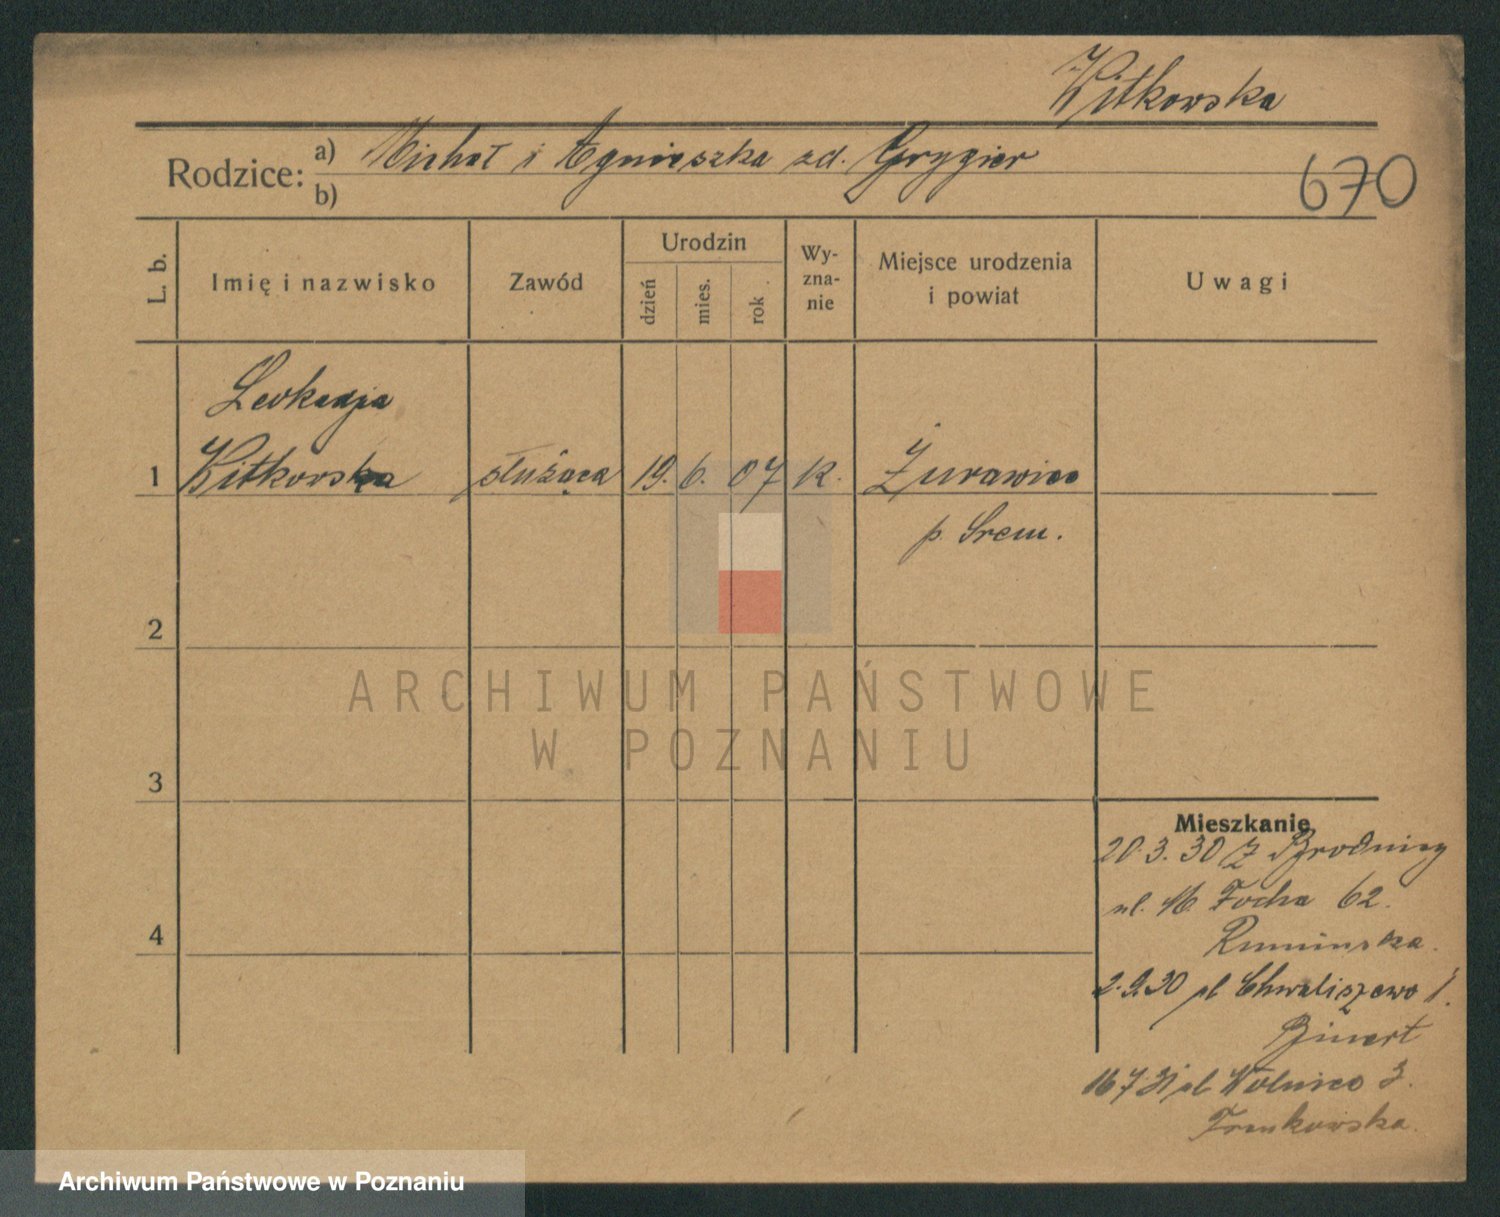 Witkowska
Rodzice: a) Michał i Agnieszka zd. Grygier
b)
670
L. b.
Imię i nazwisko
Zawód
Urodzin
dzień
mies.
rok
Wy-
zna-
nie
Miejsce urodzenia
i powiat
Uwagi
Leokadja
1 Witkowska służąca 19. 6. 07 k. Żurawiec
p. Srem.
2
3
4
Mieszkanie
20.3.30 z Brodnicy
ul. M. Focha 62.
2.9.30 pl Chwaliszewo 1.
Binert
16 7 31 pl Wolnica 3.
ARCHIWUM PAŃSTWOWE
W POZNANIU
Archiwum Państwowe w Poznaniu